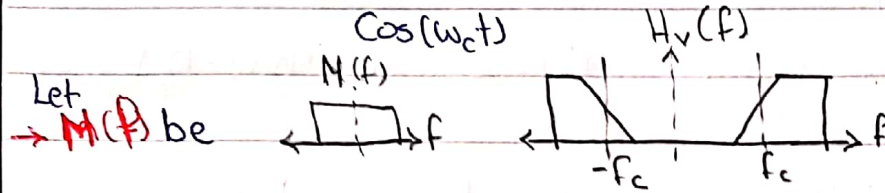 Cos(ωct) Hv(f)
Let M(f)
→ M(f) be f f
-fc fc